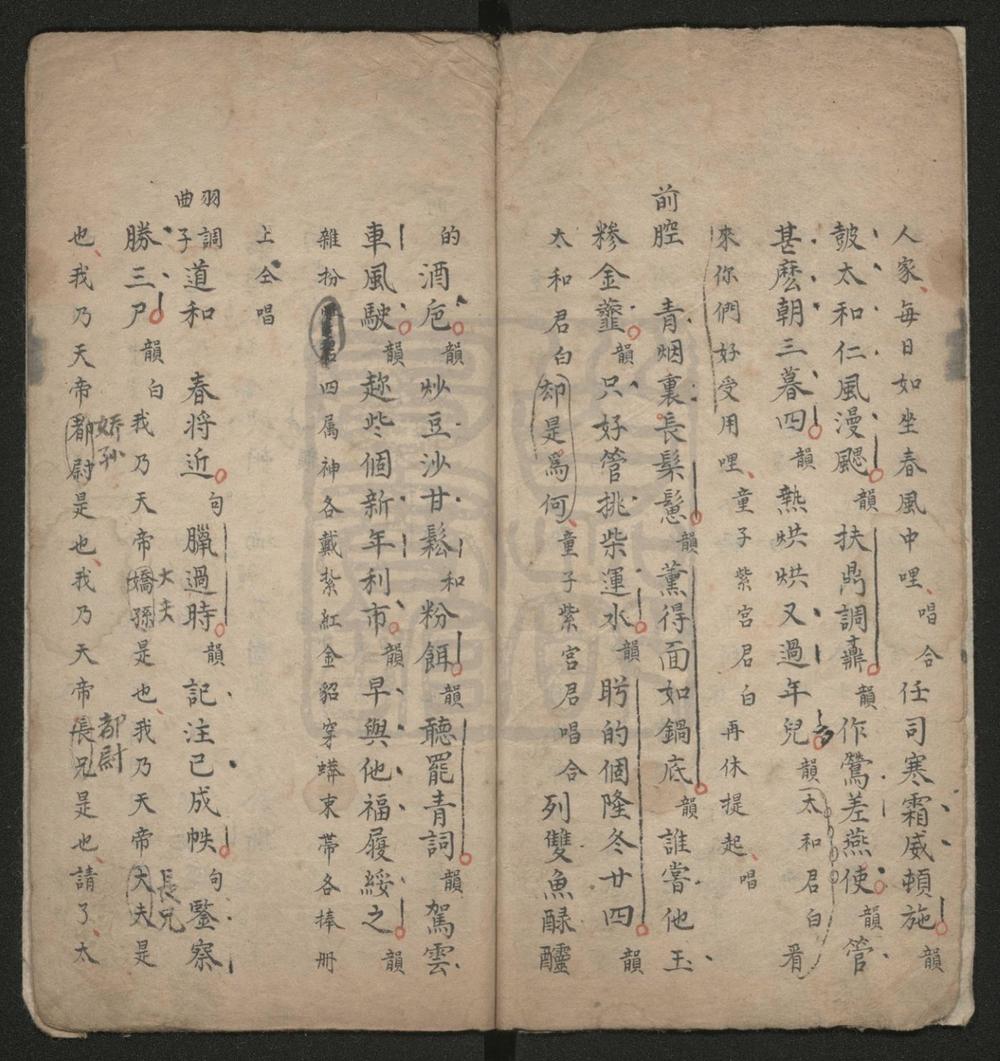 人家每日如坐春風中哩唱合任司寒霜威頓施韻
皷太和仁風漫颸韻扶鼎調鼒韻作鶯差燕使韻管
甚麽朝三暮四韻熱烘烘又過年兒韻太和君白看
來你們好受用哩童子紫宮君白再休提起唱
前腔青烟裏長鬆鬆韻薰得面如鍋底韻誰嘗他玉
糝金虀韻只好管挑柴運水韻盻的個隆冬廿四韻
太和君白却是爲何童子紫宮君唱合列雙魚醁醽
的酒卮韻炒豆沙甘鬆和粉餌韻聽罷青詞韻駕雲
車風駛韻趂些個新年利市韻早與他福履綏之韻
雜扮四属神各戴紮紅金貂穿蟒束帶各捧册
上仝唱
羽調曲子道和春将近句臘過時韻記注已成帙句鑒察
勝三尸韻白我乃天帝嬌孫是也我乃天帝大夫是
大夫
長兄
也我乃天帝都尉是也我乃天帝長兄是也請了太
嬌孫
都尉